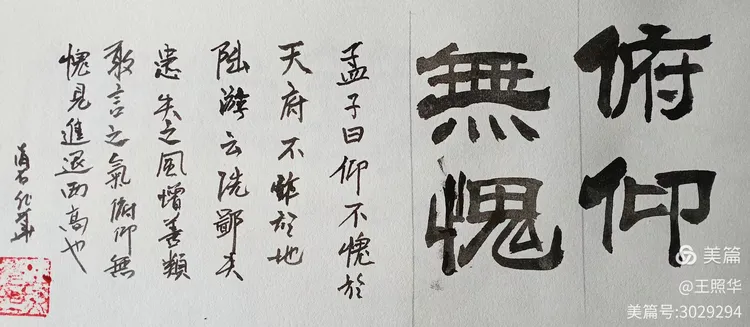 俯仰
無愧
孟子曰仰不愧於
天府不怍於地
陆游云洗鄙夫
患失之风憎善類
敢言之氣俯仰無
愧見進退两高也
美篇
@王照华
美篇号:3029294